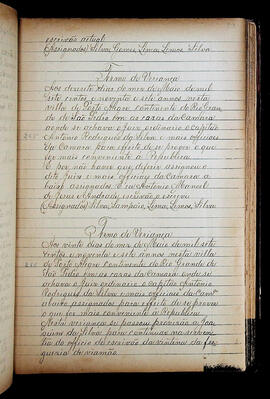 escrivão actual.
(Assignados) Silva, Gomes, Lima, Lemos, Silva
Termo de Vereança
Aos dezoito dias do mez de Maio de mil
sete centos e noventa e sete annos nesta
villa de Porto Alegre Continente do Rio Gran
de de São Pedro em as casas da Camara
onde se achava o juiz ordinario o capitão
Antonio Rodrigues da Silva e mais officiaes
da Camara para effeito de se prover o que
for mais conveniente a Republica
E por não haver que deferir assignou o
dito juiz e mais officiaes da Camara a
baixo assignados. E eu Antonio Manoel
de Jesus e Andrade, escrivão, a escrevi
(Assignados) Silva, Sampaio, Lima, Lemos, Silva
Termo de Vereança
Aos vinte dias do mez de Maio de mil sete
centos e noventa e sete annos nesta villa
de Porto Alegre continente do Rio Grande de
São Pedro em as casas da Camara onde se
achava o juiz ordinario o capitão Antonio
Rodrigues da Silva e mais officiaes da Camara
abaixo assignados para effeito de se prover
o que for mais conveniente a Republica
Nesta vereança se passou provisão a Joa
quim da Silva para continuar na
do officio de escrivão da vintena da fre
guezia de Viamão